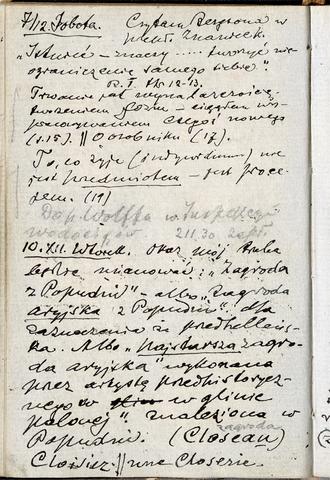 7/12 Sobota. Czytam Bergsona w
przekł. Znaniecki.
„Istnieć – znaczy ..... tworzyć nie-
ograniczenie samego siebie."
R. I. str. 12-13.
Trwanie jest wynalazczością,
tworzeniem form – ciągłem wy-
pracowywaniem czegoś nowego
(s.15). || O osobniku (17).
To, co żyje (indywiduum) nie
jest przedmiotem – jest proce-
sem. (19)
Do p. Wolffa w Inspekcji
wodociągów 211.30
10.XII. Wtorek. Obraz mój trzeba
będzie mianować: „Zagroda
z Popudni" – albo „Zagroda
aryjska z Popudni" dla
zaznaczenia że przedhelleńs-
ka. Albo „Najstarsza zagro-
da aryjska" wykonana
przez artystę przedhistorycz-
nego w w glinie
palonej", znaleziona w
Popudni. (Closeau)
zagroda
|| une Closerie.